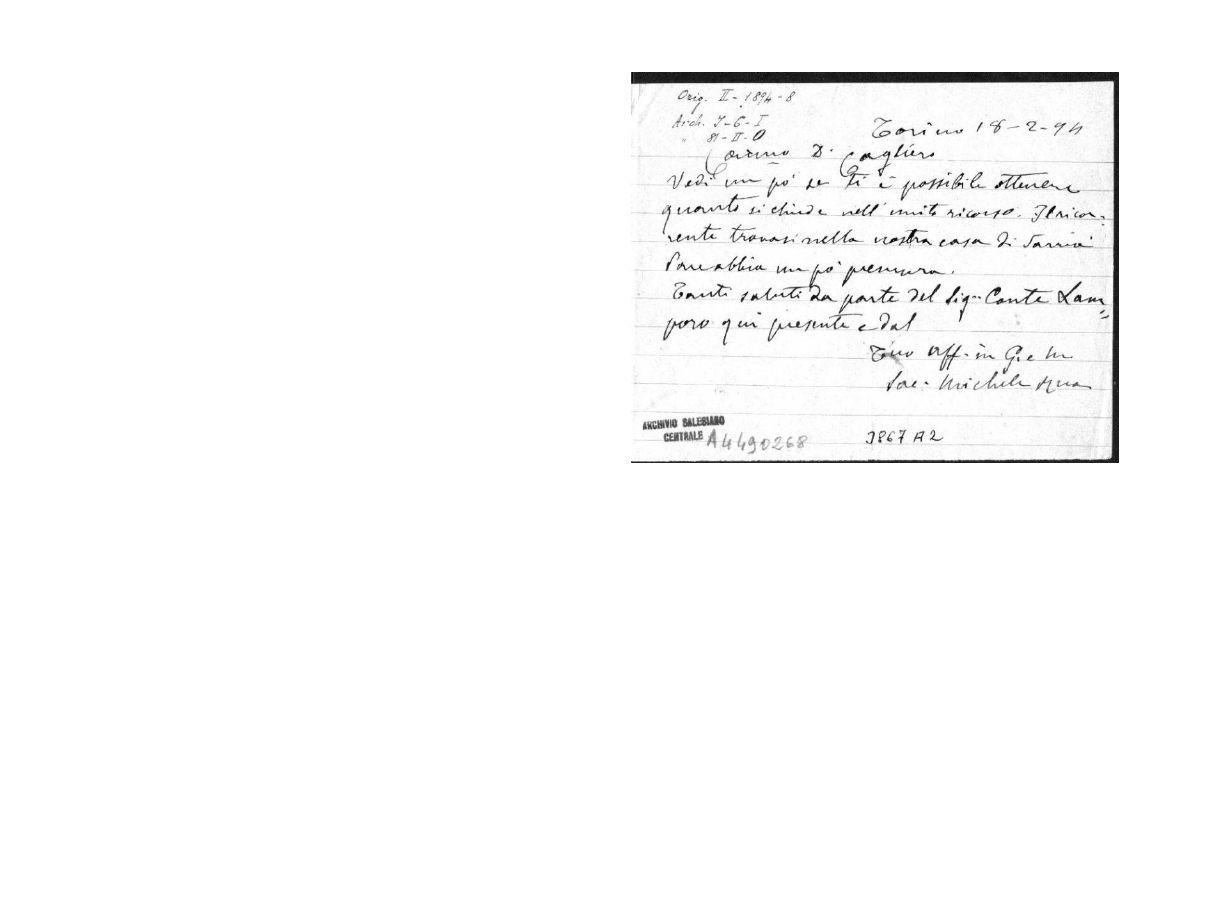 Orig. II - 1894 - 8
Arch. 9-6-I
" 81-II-O
Torino 18-2-94
Car.mo D. Cagliero
Vedi un pò se ti è possibile ottenere
quanto si chiede nell'unito ricorso. Il ricor-
rente trovasi nella nostra casa di Sarrià
Pare abbia un pò premura.
Tanti saluti da parte del Sig. Conte
qui presente e dal
Tuo aff. in G. e M.
Sac. Michele Rua
ARCHIVIO SALESIANO
CENTRALE A4490268
3867 A2